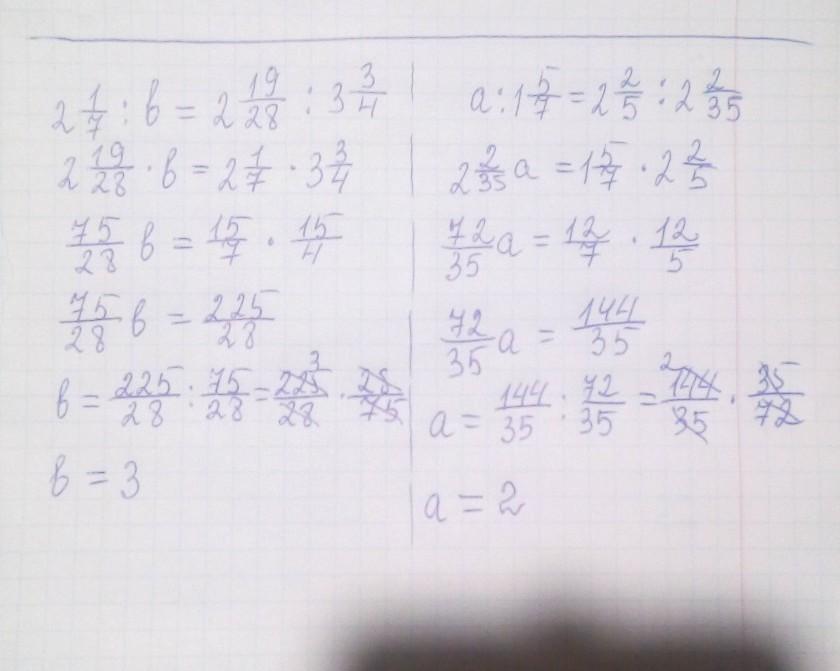 2 1/7 : в = 2 19/28 : 3 3/4
2 19/28 · в = 2 1/7 · 3 3/4
75/28 в = 15/7 · 15/4
75/28 в = 225/28
в = 225/28 : 75/28 = 225/28 · 28/75 3
в = 3
а : 1 5/7 = 2 2/5 : 2 2/35
2 2/35 а = 1 5/7 · 2 2/5
72/35 а = 12/7 · 12/5
72/35 а = 144/35
а = 144/35 : 72/35 = 144/35 · 35/72 2
а = 2